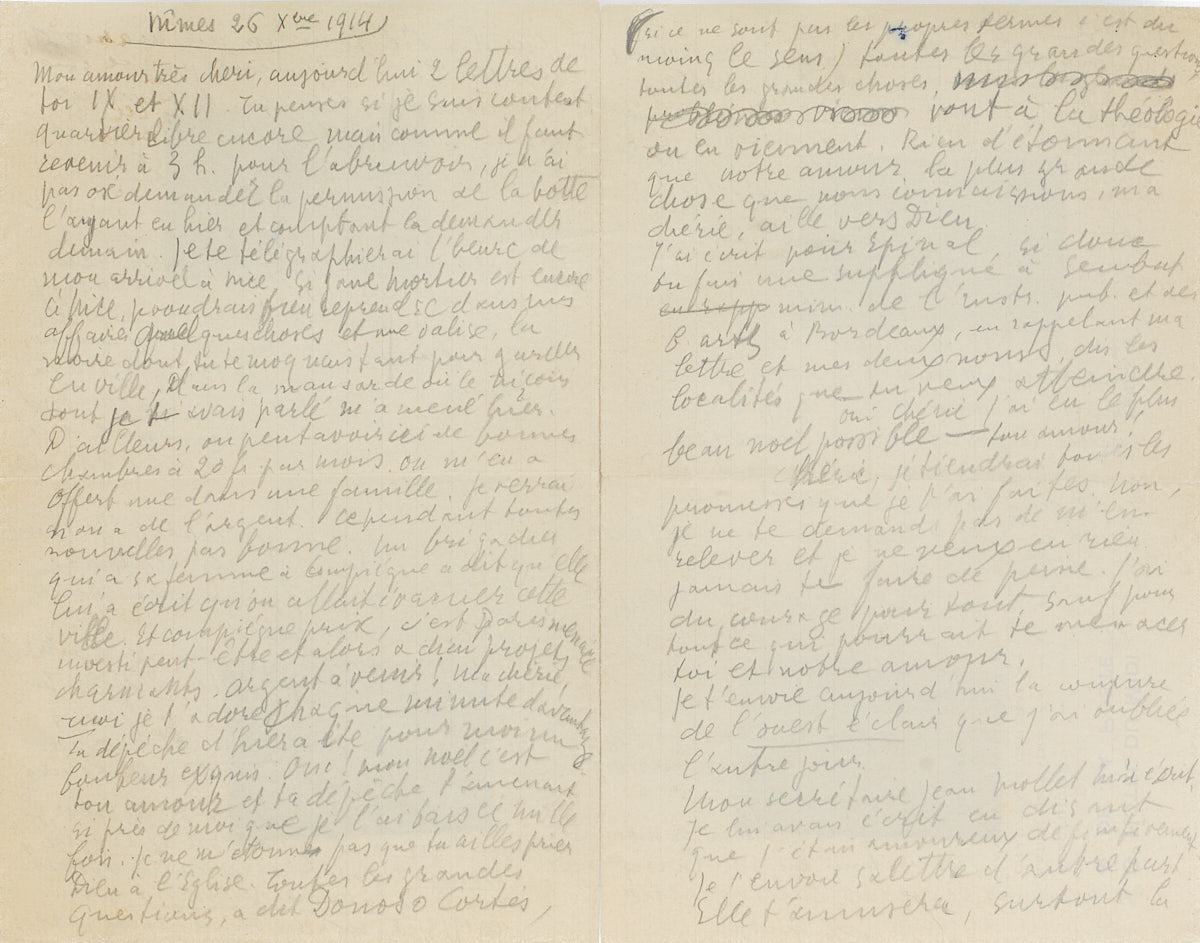 Nîmes 26 Xbre 1914
Mon amour très chéri, aujourd'hui 2 lettres de
toi IX et XII. Tu penses si je suis content
quartier libre encore mais comme il faut
revenir à 3 h. pour l'abreuvoir, je n'ai
pas osé demander la permission de la botte
l'ayant eu hier et comptant la demander
demain. Je te télégraphierai l'heure de
mon arrivée à Nice. Si
à Nice, prendre dans mes
affaires quelques choses et une valise, la
noire dont tu te moquais tant pour garder
en ville, dans la mansarde où le niçois
dont je t'avais parlé m'a mené hier.
D'ailleurs, on peut avoir ici de bonnes
chambres à 20 fr. par mois. On m'en a
offert une dans une famille. Je verrai
si on a de l'argent. Cependant toutes
nouvelles pas bonne. Un brigadier
qui a sa femme à Compiègne a dit qu'elle
lui a écrit qu'on allait évacuer cette
ville. Et Compiègne prix, c'est Paris menacé
investi peut-être et alors adieu projets
charmants. Argent à venir! Ma chérie,
moi je t'adore chaque minute davantage.
Ta dépêche d'hier a été pour moi un
bonheur exquis. Oui! mon noël c'est
ton amour et ta dépêche t'amenant
si près de moi que je t'ai baisée mille
fois. Je ne m'étonne pas que tu ailles prier
Dieu à l'Eglise. Toutes les grandes
questions, a dit Donoso Cortés,
(si ce ne sont pas les propres termes c'est du
moins le sens) toutes les grandes questions
toutes les grandes choses,
vont à la théologie
ou en viennent. Rien d'étonnant
que notre amour la plus grande
chose que nous connaissions, ma
chérie, aille vers Dieu
J'ai écrit pour Epinal, si donc
tu fais une supplique à Sembat
min. de l'Instr. pub. et des
b. arts à Bordeaux, en rappelant ma
lettre et mes deux noms, dis les
localités que tu veux atteindre.
Oui chérie j'ai eu le plus
beau noël possible — ton amour!
Chérie, je tiendrai toutes les
promesses que je t'ai faites. Non,
je ne te demande pas de m'en
relever et je ne veux en rien
jamais te faire de peine. J'ai
du courage pour tout, sauf pour
tout ce qui pourrait te menacer
toi et notre amour.
Je t'envoie aujourd'hui la coupure
de l'ouest éclair que j'ai oubliée
l'autre jour
Mon secrétaire Jean Mollet m'a écrit,
je lui avais écrit en disant
que j'étais amoureux définitivement
Je t'envoie sa lettre d'autre part
Elle t'amusera, surtout la